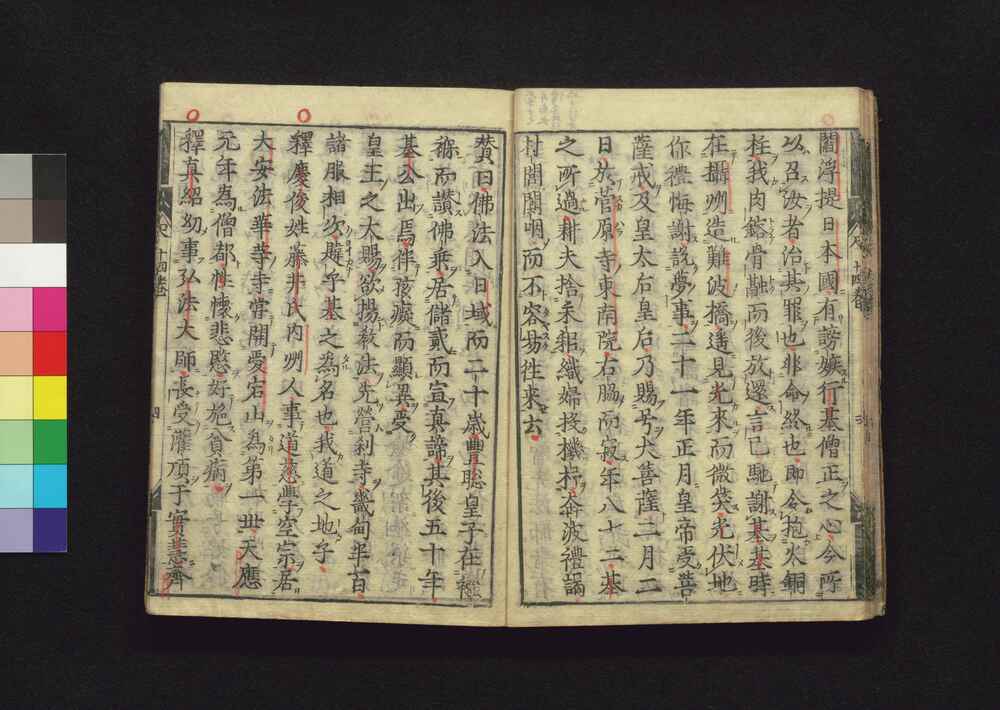 閻浮提日本國有謗嫉行基僧正之心今所
以召汝者治其罪也非命然也即令抱火銅
柱我肉鎔骨融而後放還言已馳謝基基時
在攝州造難波橋遙見光來而微笑光伏地
作禮悔謝說夢事二十一年正月皇帝受菩
薩戒及皇太后皇后乃賜号大菩薩二月二
日於菅原寺東南院右脇而寂年八十二基
之所過耕夫捨耒耜織婦投機杼奔波禮謁
村閭闐咽而不容易徃來去
賛曰佛法入日域而二十歳豐聰皇子在襁
褓而讃佛乘居儲貳而宣真諦其後五十年
基公出焉伴孩癡而顯異受
皇王之大賜欲揚教法先營刹寺畿甸半百
諸服相次嗟乎基之為名也我道之地乎
釋慶俊姓藤井氏内州人事道慈學空宗居
大安法華等寺嘗開愛宕山為第一丗天應
元年為僧都性懷悲愍好施貧病
釋真紹幼事弘法大師長受灌頂于實慧齊
十四巻
四